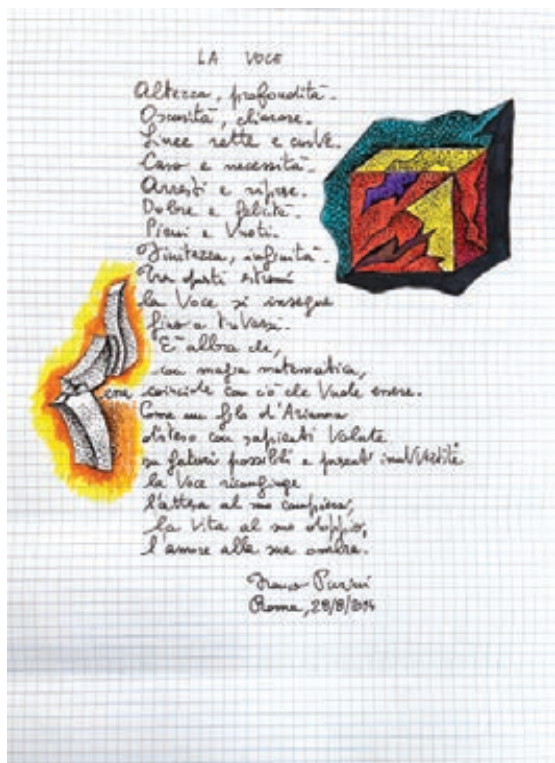 LA VOCE
Altezza, profondità.
Oscurità, chiarore.
Linee rette e curve.
Caso e necessità.
Arresti e riprese.
Dolore e felicità.
Pieni e Vuoti.
Finitezza, infinità.
Tra questi estremi
la Voce si insegue
fino a trovarsi.
E allora che,
con magia matematica,
essa coincide con ciò che Vuole essere.
Come un filo d'Arianna
disteso con sapienti Volute
su futuri possibili e presenti
la Voce ricongiunge
l'attesa al suo compiersi,
la Vita al suo doppio,
l'amore alla sua ombra.
Franco Purini
Roma, 28/8/2014